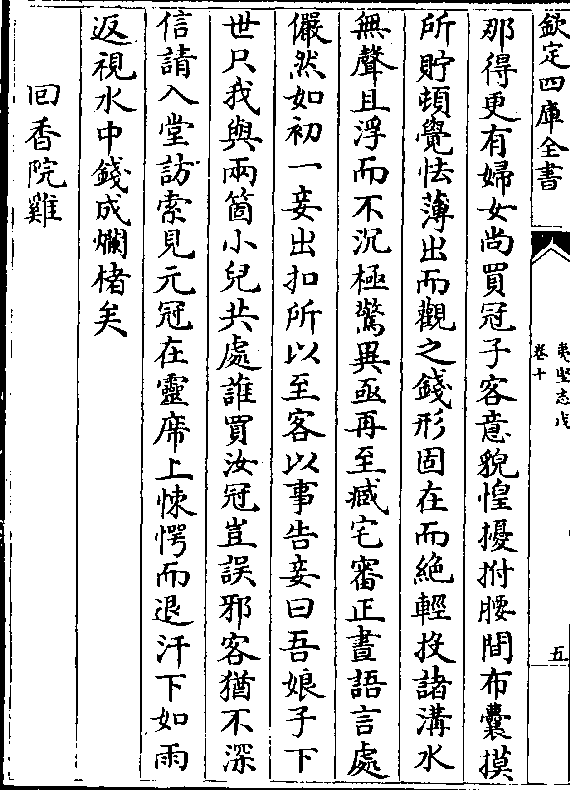 欽定四庫全書
夷堅志戊
卷十
五
那得更有婦女尚買冠子客意貌惶擾拊腰間布囊摸
所貯頓覺怯薄出而觀之錢形固在而絶輕投諸溝水
無聲且浮而不沉極驚異亟再至臧宅審正晝語言處
儼然如初一妾出扣所以至客以事告妾曰吾娘子下
世只我與兩箇小兒共處誰買汝冠豈誤邪客猶不深
信請入堂訪索見元冠在靈席上悚愕而退汗下如雨
返視水中錢成爛楮矣
回香院雞